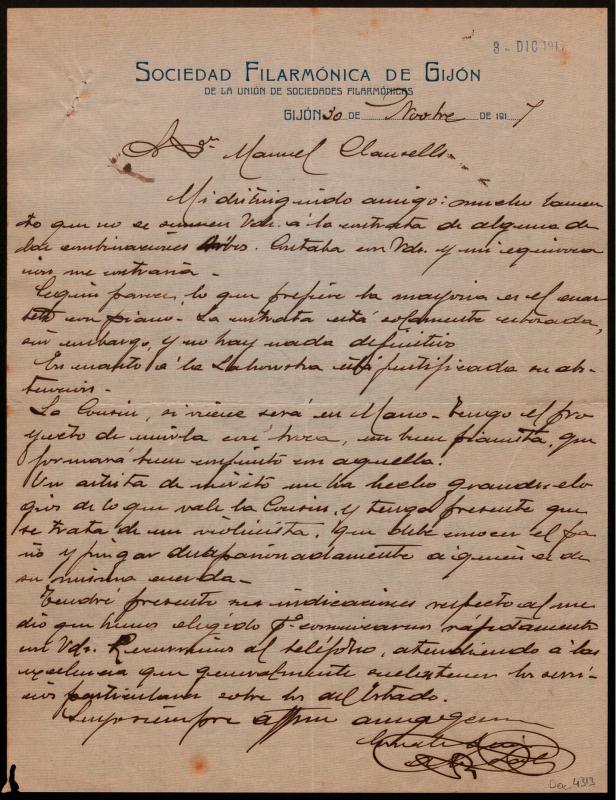 3 - DIC 191
SOCIEDAD FILARMÓNICA DE GIJÓN
DE LA UNIÓN DE SOCIEDADES FILARMÓNICAS
GIJÓN 30 DE Novbre DE 1917
Sr. Manuel Clausells
Mi distinguido amigo: mucho lamen
to que no se sumen Vds. á la contrata de alguna de
las combinaciones tríos. Contaba con Vds. y mi equivoca
ción me contraría.
Según parece, lo que prefiere la mayoría es el cuar
teto con piano. La contrata está solamente esbozada,
sin embargo, y no hay nada definitivo
En cuanto á la Lahowska está justificada su abs
tención.
La Cousin, si viene será en Marzo. Tengo el pro
yecto de unirla con, un buen pianista, que
formará buen conjunto con aquella.
Un artista de mérito me ha hecho grandes elo
gios de lo que vale la Cousin, y tenga presente que
se trata de un violinista, que debe conocer el pa
ño y juzgar desapasionadamente a quien es de
su misma cuerda.
Tendré presente sus indicaciones respecto al me
dio que hemos elegido pª comunicarnos rápidamente
con Vds. Recurrimos al teléfono, atendiendo á las
excelencias que generalmente suelen tener los servi
cios particulares sobre los del Estado.
Suyo siempre affmo amigo
Doc 4313